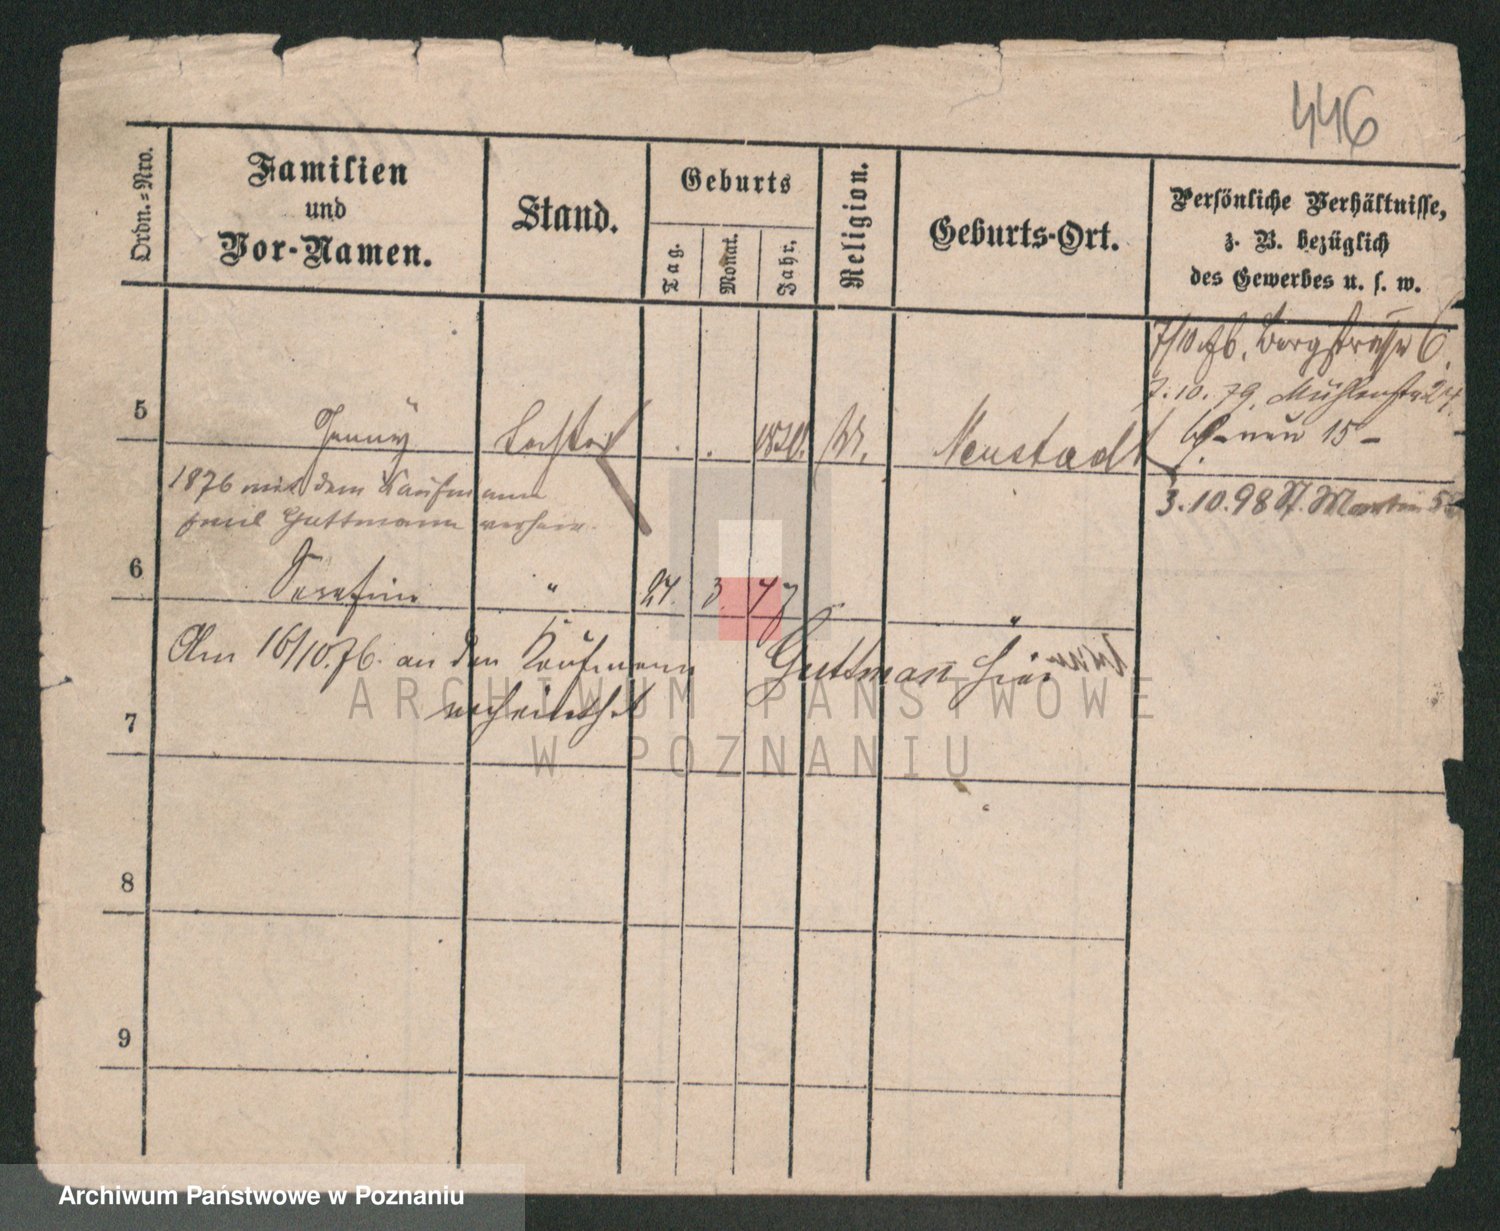 446
Ordn.-Nro.
Familien
und
Vor-Namen.
Stand.
Geburts
Tag.
Monat.
Jahr.
Religion.
Geburts-Ort.
Persönliche Verhältnisse,
z. B. bezüglich
des Gewerbes u. s. w.
7/10 76, Bergstrasse 6.
7.10.79. Mühlenstr 24.
5 Jenny Tochter Neustadt
neu 15
1876 mit dem Kaufmann
Emil Guttmann verheir.
3.10.98 St. Martin
6 Serafine " 24. 3 47 "
Am 16/10.76. an den Kaufmann Guttman hier
verheirathet
7
8
9
ARCHIWUM PAŃSTWOWE
W POZNANIU
Archiwum Państwowe w Poznaniu